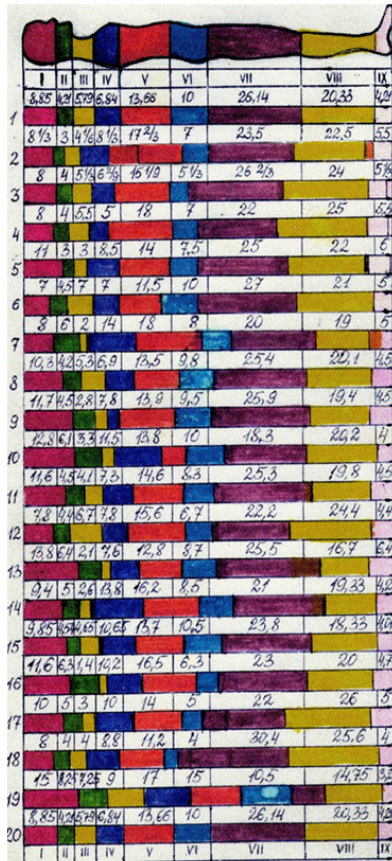 I II III IV V VI VII VIII IX
8,85 4,21 5,79 6,84 13,66 10 26,14 20,33 4,21
1
8⅓ 3 4⅙ 8⅓ 17⅔ 7 23,5 22,5 5,5
2
8 4 5⅓ 6⅔ 15⅑ 5⅓ 26⅔ 24
3
8 4 5,5 5 18 7 22 25
4
11 3 3 8,5 14 7,5 25 22 6
5
7 4,5 7 7 11,5 10 27 21 5
6
8 6 2 14 18 8 20 19 5
7
10,3 4,2 5,3 6,9 13,5 9,8 25,4 20,1 4,5
8
11,7 4,5 2,8 7,8 13,9 9,5 25,9 19,4 4,5
9
12,8 6,1 3,3 11,5 13,8 10 18,3 20,2 4
10
11,6 4,5 4,1 7,3 14,6 8,3 25,3 19,8 4,5
11
7,8 4,4 6,7 7,8 15,6 6,7 22,2 24,4 4,4
12
13,8 6,4 2,1 7,6 12,8 8,7 25,5 16,7 6,4
13
9,4 5 2,6 13,8 16,2 8,5 21 19,33
14
9,85 4,65 10,65 13,7 10,5 23,8 18,33
15
11,6 6,3 1,4 10,2 16,5 6,3 23 20 4,7
16
10 5 3 10 14 5 22 26 5
17
8 4 4 8,8 11,2 4 30,4 25,6 4
18
15 9 17 15 10,5 14,75
19
8,85 4,21 5,79 6,84 13,66 10 26,14 20,33 4,21
20
I II III IV V VI VII VIII IX